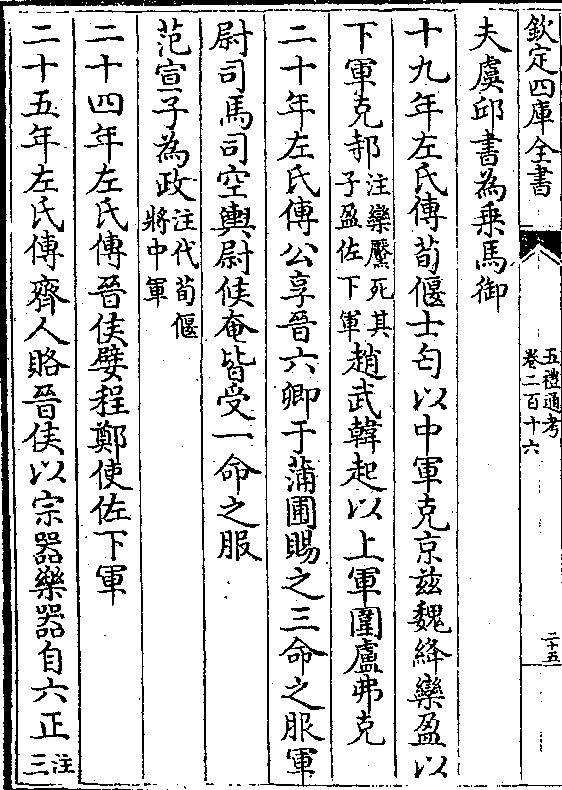 欽定四庫全書
五禮通考
卷二百十六
二十五
夫虞邱書為乗馬御
十九年左氏傳荀偃士匄以中軍克京兹魏絳欒盈以
下軍克邿注欒黶死其子盈佐下軍趙武韓起以上軍圍盧弗克
二十年左氏傳公享晉六卿于蒲圃賜之三命之服軍
尉司馬司空輿尉侯奄皆受一命之服
范宣子為政注代荀偃將中軍
二十四年左氏傳晉侯嬖程鄭使佐下軍
二十五年左氏傳齊人賂晉侯以宗器樂器自六正注三